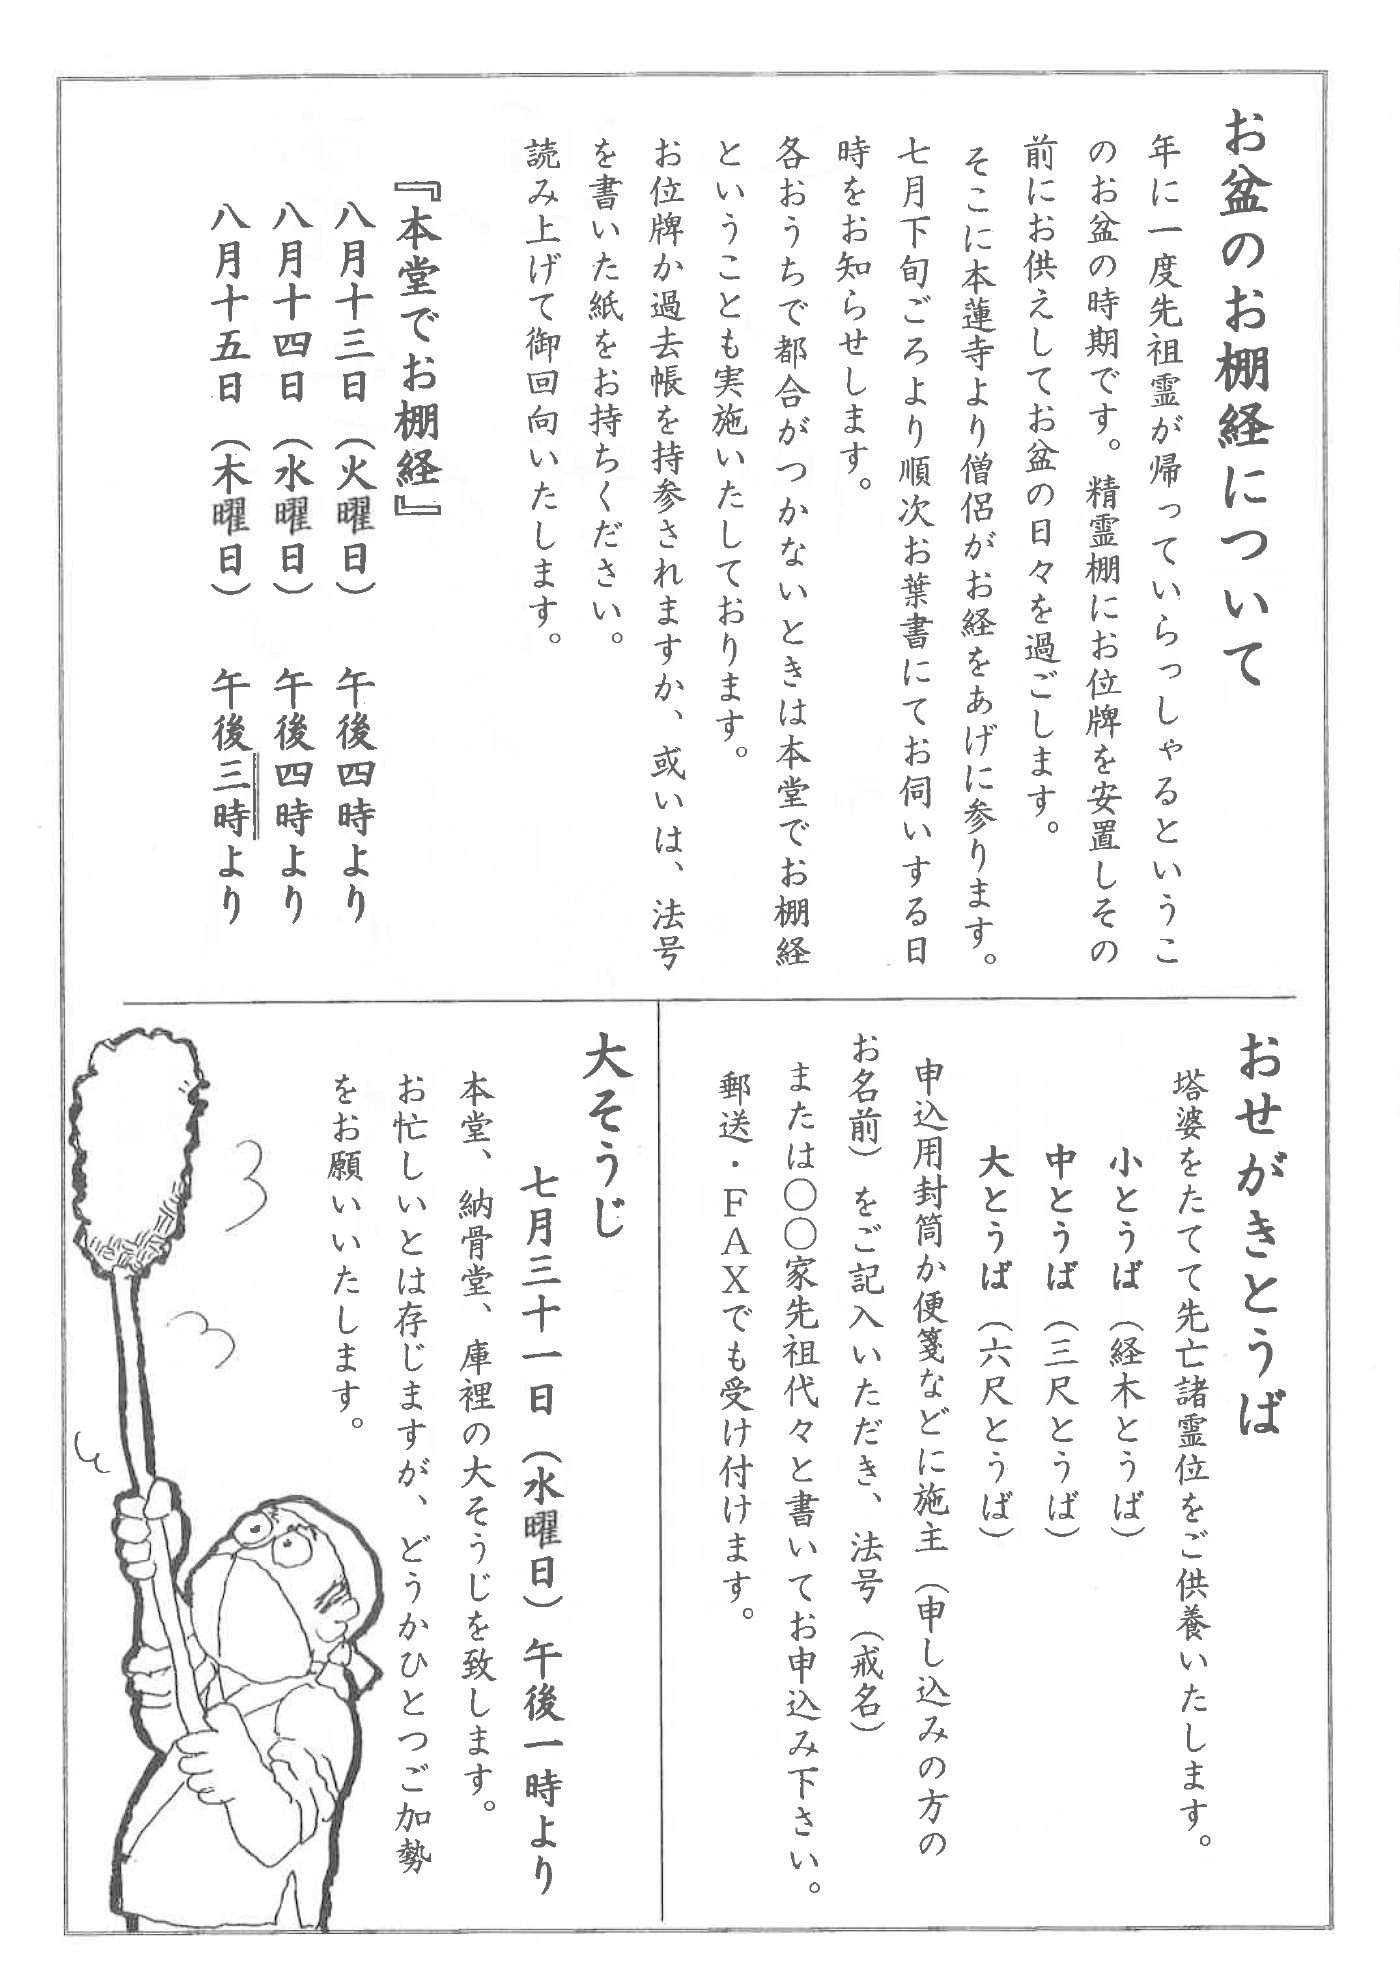 お盆のお棚経について
年に一度先祖霊が帰っていらっしゃるというこ
のお盆の時期です。精霊棚にお位牌を安置しその
前にお供えしてお盆の日々を過ごします。
そこに本蓮寺より僧侶がお経をあげに参ります。
七月下旬ごろより順次お葉書にてお伺いする日
時をお知らせします。
各おうちで都合がつかないときは本堂でお棚経
ということも実施いたしております。
お位牌か過去帳を持参されますか、或いは、法号
を書いた紙をお持ちください。
読み上げて御回向いたします。
『本堂でお棚経』
八月十三日（火曜日）　午後四時より
八月十四日（水曜日）　午後四時より
八月十五日（木曜日）　午後三時より
おせがきとうば
塔婆をたてて先亡諸霊位をご供養いたします。
小とうば（経木とうば）
中とうば（三尺とうば）
大とうば（六尺とうば）
申込用封筒か便箋などに施主（申し込みの方の
お名前）をご記入いただき、法号（戒名）
または〇〇家先祖代々と書いてお申込み下さい。
郵送・ＦＡＸでも受け付けます。
大そうじ
七月三十一日（水曜日）午後一時より
本堂、納骨堂、庫裡の大そうじを致します。
お忙しいとは存じますが、どうかひとつご加勢
をお願いいたします。